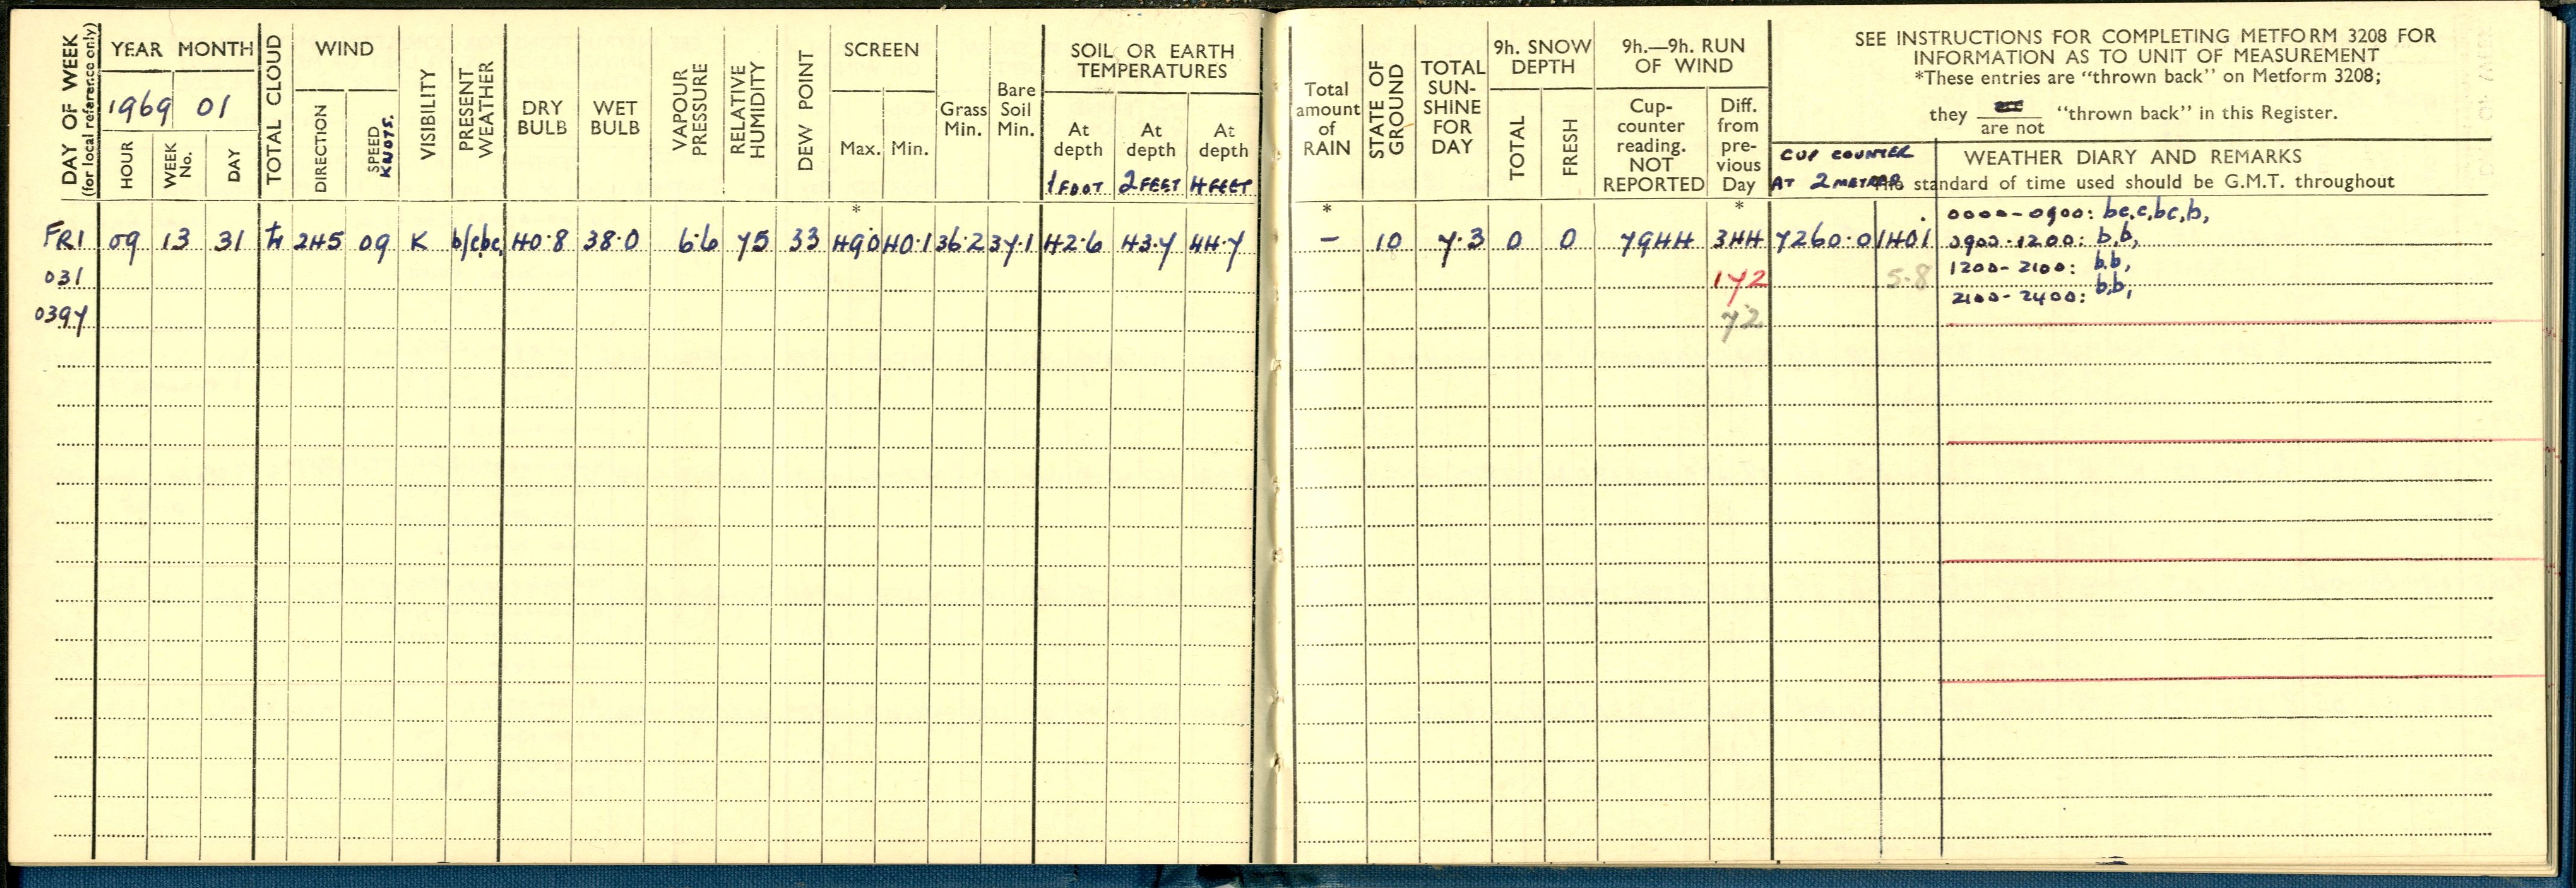 DAY OF WEEK
(for local reference only)
YEAR MONTH
1969 01
HOUR
WEEK No.
DAY
TOTAL CLOUD
WIND
DIRECTION
SPEED
KNOTS.
VISIBILITY
PRESENT
WEATHER
DRY
BULB
WET
BULB
VAPOUR
PRESSURE
RELATIVE
HUMIDITY
DEW POINT
SCREEN
Max. Min.
Grass
Min.
Bare
Soil
Min.
SOIL OR EARTH
TEMPERATURES
At
depth
1 FOOT
At
depth
2 FEET
At
depth
4 FEET
*
FRI 09 13 31 245 09 K b/cbc, 40.8 38.0 6.6 75 33 49.0 40.1 36.2 37.1 42.6 43.7 44.7
031
0397
Total
amount
of
RAIN
STATE OF
GROUND
TOTAL
SUN-
SHINE
FOR
DAY
9h. SNOW
DEPTH
TOTAL
FRESH
9h.—9h. RUN
OF WIND
Cup-
counter
reading.
NOT
REPORTED
Diff.
from
pre-
vious
Day
SEE INSTRUCTIONS FOR COMPLETING METFORM 3208 FOR
INFORMATION AS TO UNIT OF MEASUREMENT
*These entries are "thrown back" on Metform 3208;
they are "thrown back" in this Register.
are not
CUP COUNTER
AT 2 METRES
WEATHER DIARY AND REMARKS
standard of time used should be G.M.T. throughout
* *
– 10 7.3 0 0 7944 344 7260.0 1401
172 5.8
72
0000-0900: bc,c,bc,b,
0900-1200: b,b,
1200-2100: b,b,
2100-2400: b,b,